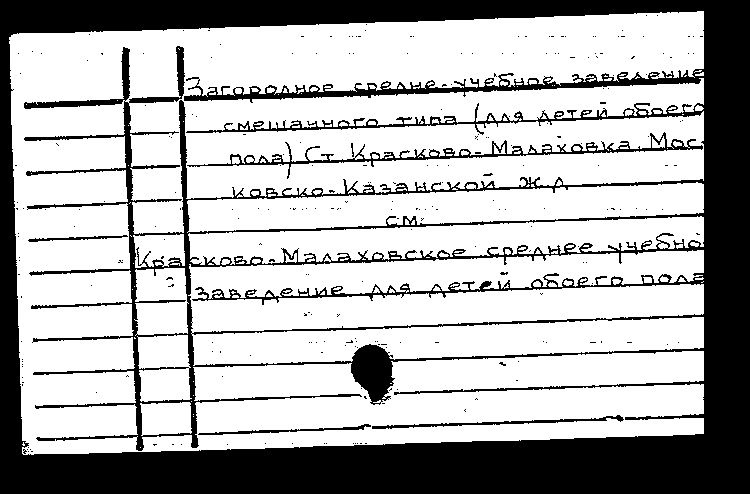 Загородное средне-учебное заведение
смешанного типа (для детей обоего
пола) Ст. Красково-Малаховка. Мос-
ковско-Казанской ж.д.
см.
Красково-Малаховское среднее учебно
заведение для детей обоего пола